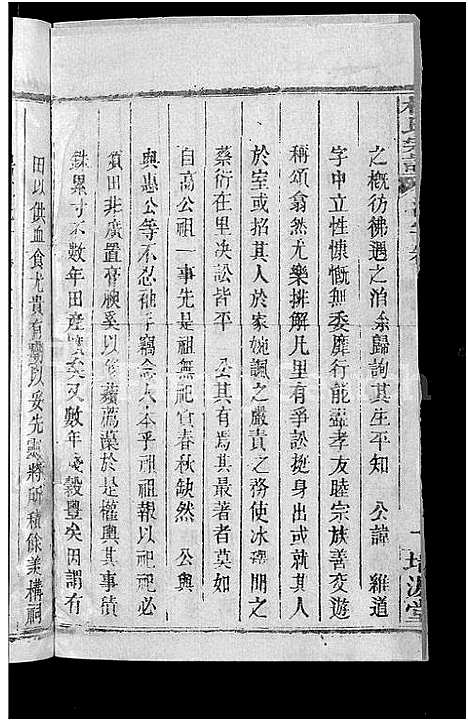 之概彷彿遇之泊余歸詢其生平知　公諱　雞道
字中立性慷慨無委靡行能盡孝友睦宗族善交遊
稱頌翕然尤樂排解凡里有爭訟挺身出或就其人
於室或招其人於家婉諷之嚴責之務使冰釋間之
蔡衍在里決訟皆平　公其有焉其最著者莫如
自高公祖一事先是祖無祀賞春秋缺然　公與
與惠公等不忍袖手竊念人本乎祖祖報以祀祀必
須田非廣置膏腴奚以修蘋蘩薀藻於是權輿其事積
銖累寸不數年田產買矣又數年　穀豐矣因謂有
田以供血食尤貴有廟以妥先靈將所積餘美構祠
氏宗譜
堂